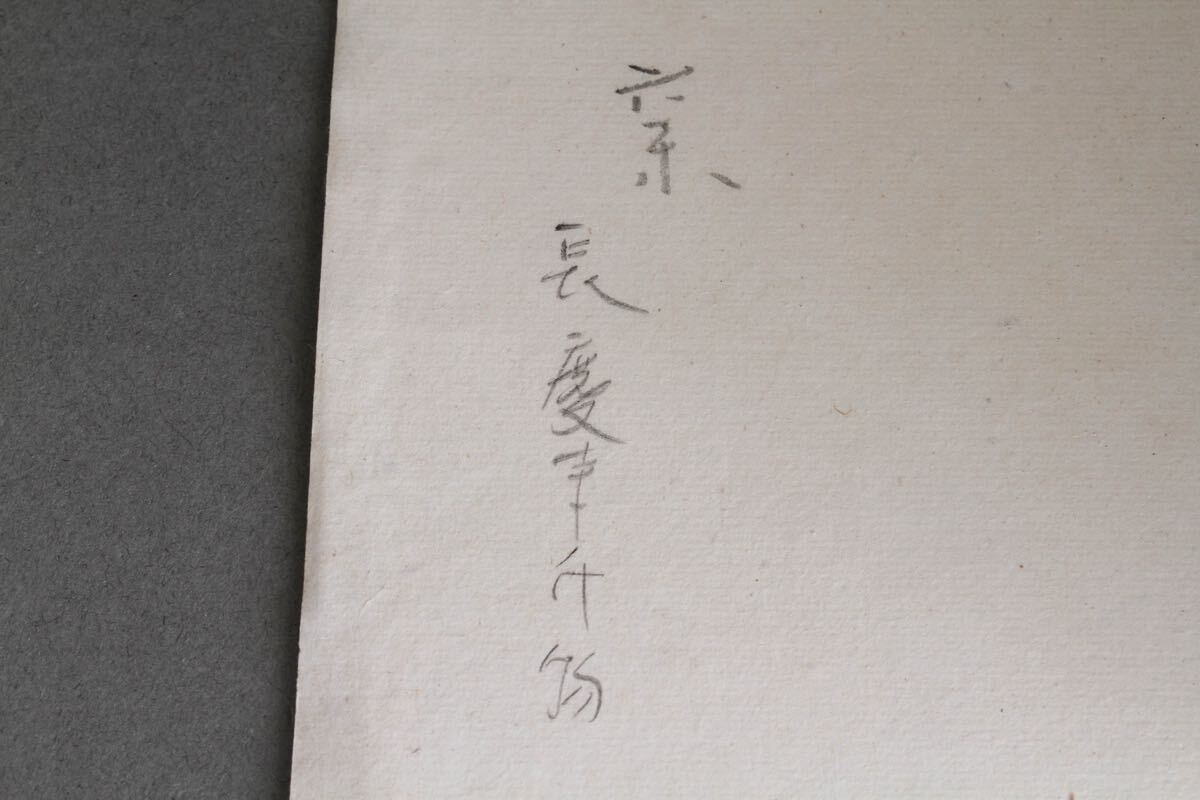 長慶寺什物